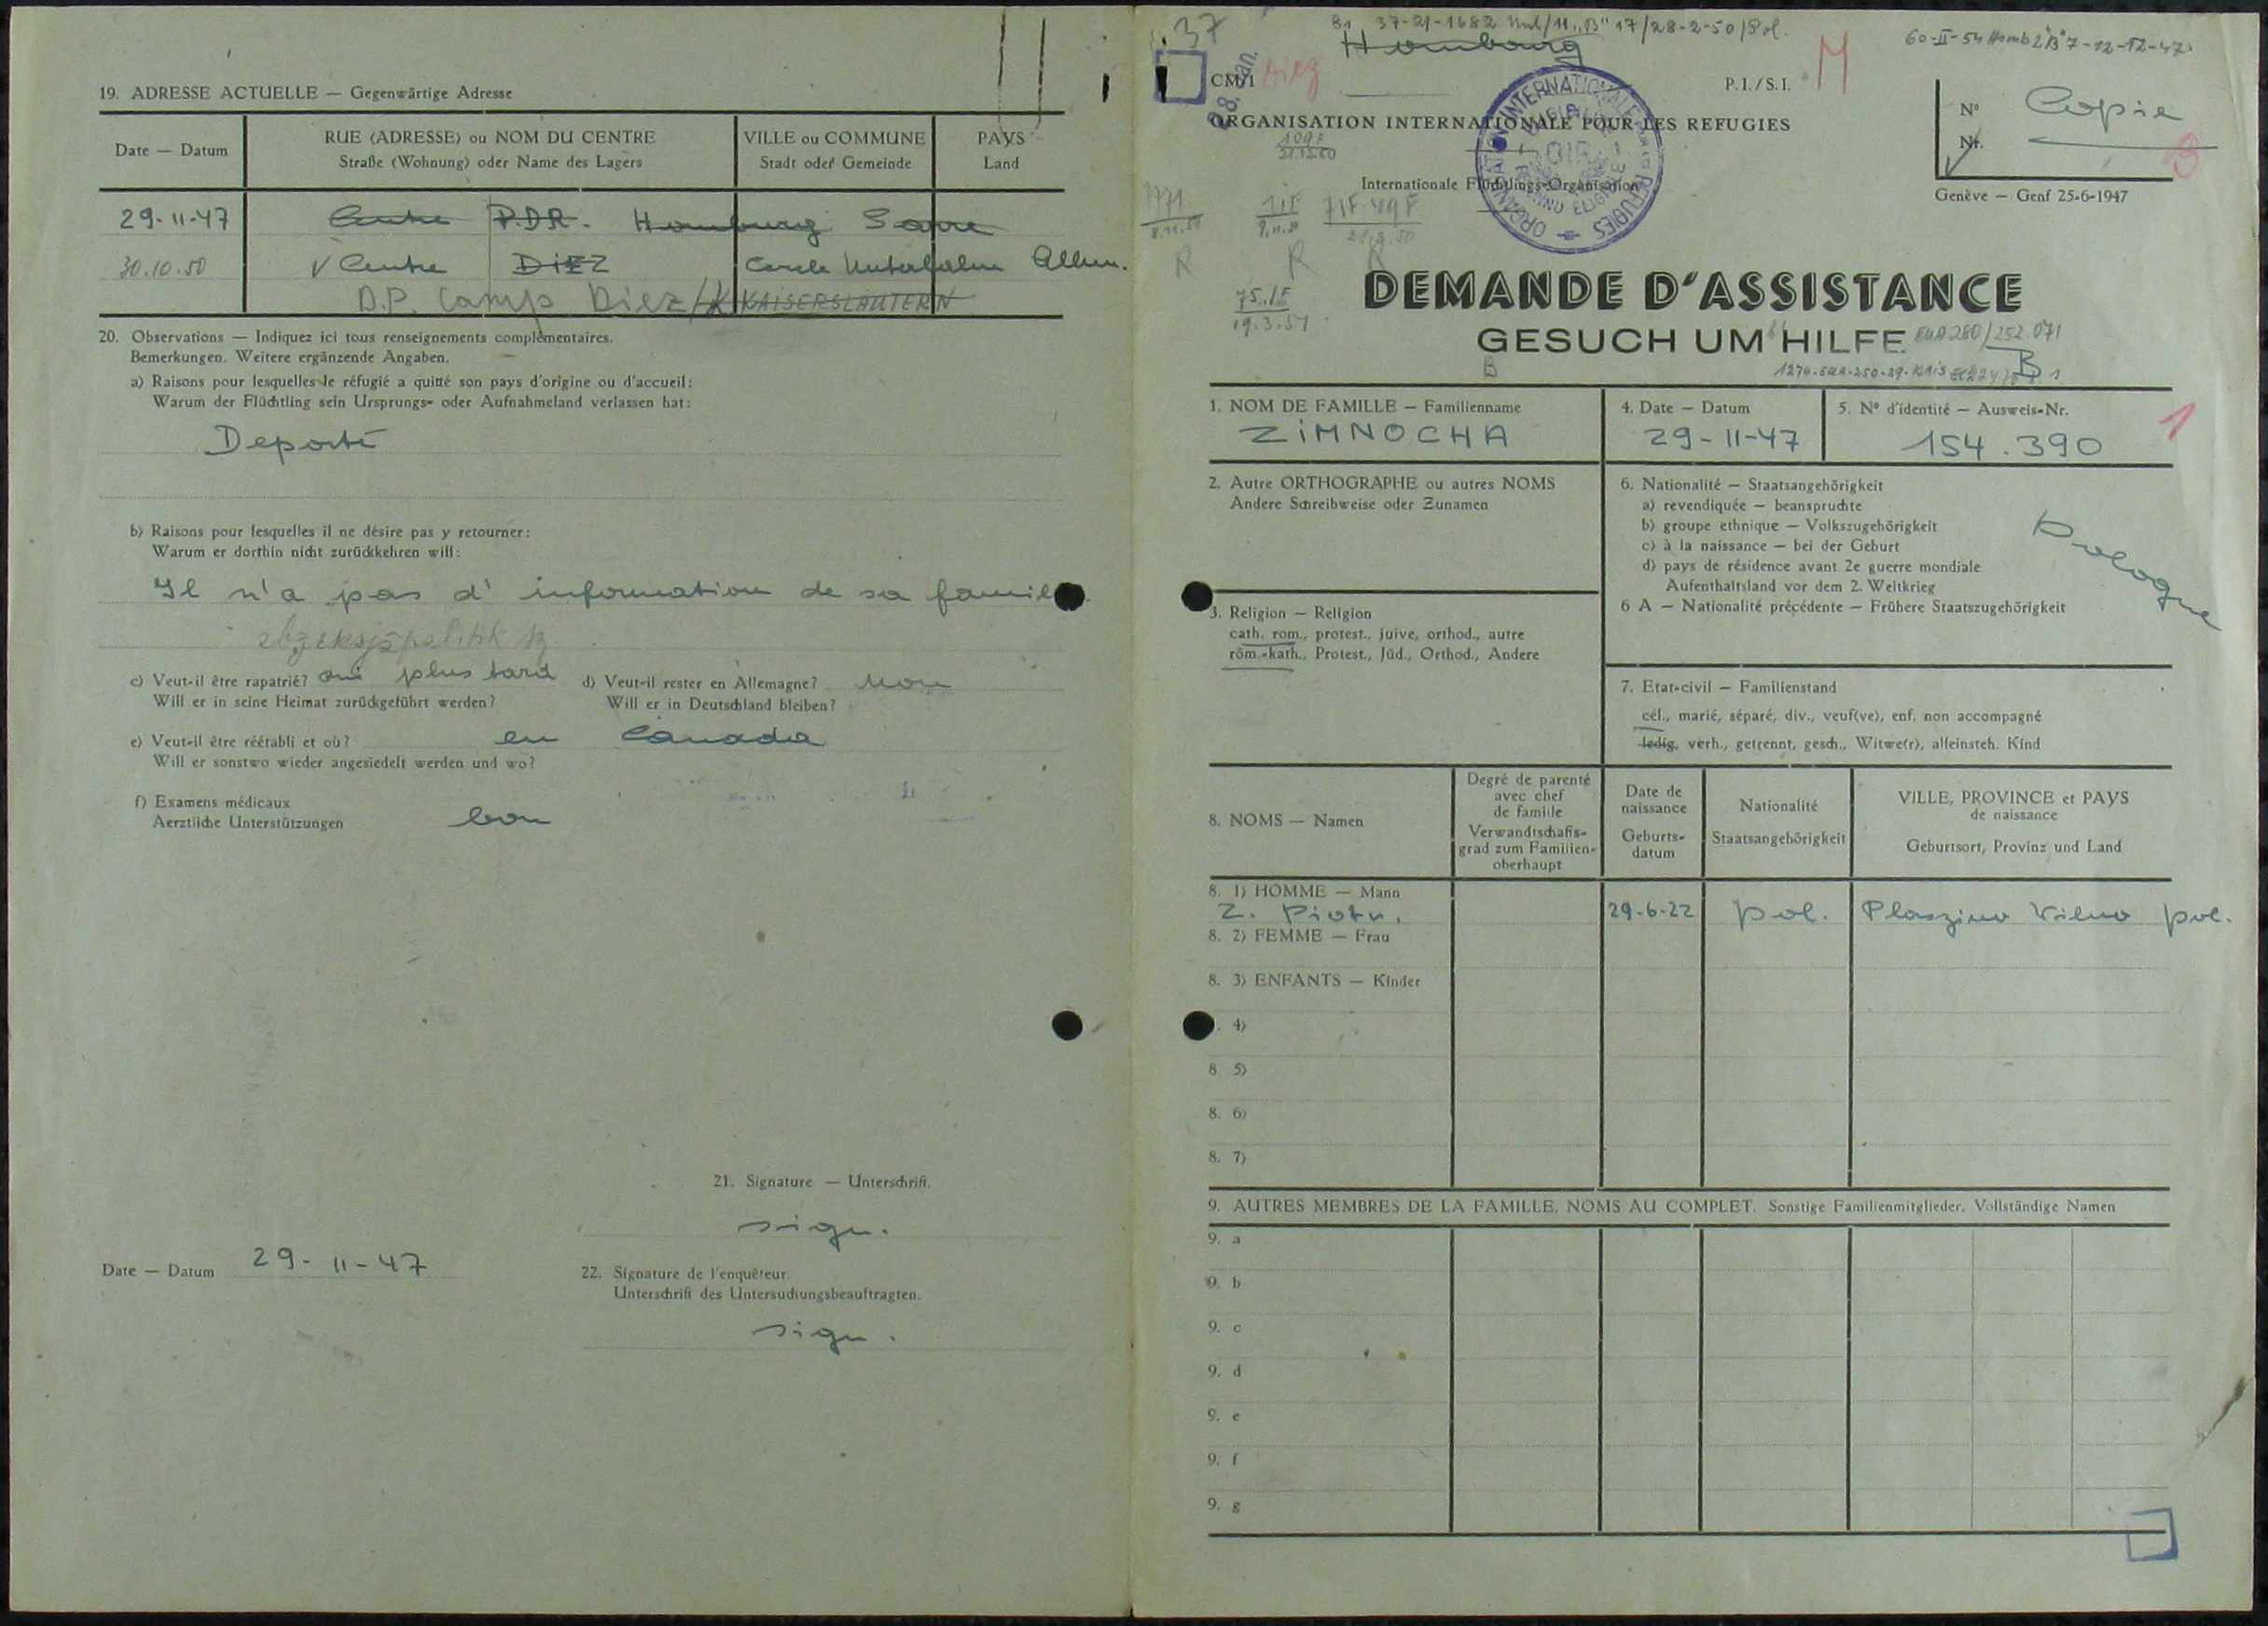 19. ADRESSE ACTUELLE — Gegenwärtige Adresse
Date — Datum
RUE (ADRESSE) ou NOM DU CENTRE
Straße (Wohnung) oder Name des Lagers
VILLE ou COMMUNE
Stadt oder Gemeinde
PAYS
Land
29-11-47 Centre P.D.R. Homburg Sarre
30.10.50 Centre DIEZ Cercle Unterlahn Allem.
D.P. Camp Diez/L KAISERSLAUTERN
20. Observations — Indiquez ici tous renseignements complémentaires.
Bemerkungen. Weitere ergänzende Angaben.
a) Raisons pour lesquelles le réfugié a quitté son pays d'origine ou d'accueil:
Warum der Flüchtling sein Ursprungs- oder Aufnahmeland verlassen hat:
Deporté
b) Raisons pour lesquelles il ne désire pas y retourner:
Warum er dorthin nicht zurückkehren will:
Il n'a pas d'information de sa famil
c) Veut-il être rapatrié? oui plus tard d) Veut-il rester en Allemagne? non
Will er in seine Heimat zurückgeführt werden? Will er in Deutschland bleiben?
e) Veut-il être réétabli et où? en Canada
Will er sonstwo wieder angesiedelt werden und wo?
f) Examens médicaux
Aerztliche Unterstützungen bon
21. Signature — Unterschrift.
sign.
Date — Datum 29-11-47
22. Signature de l'enquêteur.
Unterschrift des Untersuchungsbeauftragten.
sign.
37
37-21-1682 11 "B" 17/28-2-50/Pol.
Hombourg
60-II-54 Homb 2"B" 7-12-12-47
CM/1 Diez
28. Jan.
P.I./S.I. M
N° Copie
Nr.
B
ORGANISATION INTERNATIONALE POUR LES REFUGIES
Internationale Flüchtlings-Organisation
OIR
Genève — Genf 25-6-1947
109 F
71F-49F
R R R
75./F
19.3.51
DEMANDE D'ASSISTANCE
GESUCH UM HILFE
B
B
1. NOM DE FAMILLE — Familienname
ZIMNOCHA
4. Date — Datum
29-11-47
5. N° d'identité — Ausweis-Nr.
154.390
1
2. Autre ORTHOGRAPHE ou autres NOMS
Andere Schreibweise oder Zunamen
3. Religion — Religion
cath. rom., protest., juive, orthod., autre
röm.-kath., Protest., Jüd., Orthod., Andere
6. Nationalité — Staatsangehörigkeit
a) revendiquée — beanspruchte
b) groupe ethnique — Volkszugehörigkeit
c) à la naissance — bei der Geburt
d) pays de résidence avant 2e guerre mondiale
Aufenthaltsland vor dem 2. Weltkrieg
6 A — Nationalité précédente — Frühere Staatszugehörigkeit
Pologne
7. Etat-civil — Familienstand
cél., marié, séparé, div., veuf(ve), enf. non accompagné
ledig, verh., getrennt, gesch., Witwe(r), alleinsteh. Kind
8. NOMS — Namen
Degré de parenté
avec chef
de famille
Verwandtschafts-
grad zum Familien-
oberhaupt
Date de
naissance
Geburts-
datum
Nationalité
Staatsangehörigkeit
VILLE, PROVINCE et PAYS
de naissance
Geburtsort, Provinz und Land
8. 1) HOMME — Mann
Z. Piotr. 29-6-22 pol. Plaszino Vilno pol.
8. 2) FEMME — Frau
8. 3) ENFANTS — Kinder
4)
8 5)
8. 6)
8. 7)
9. AUTRES MEMBRES DE LA FAMILLE, NOMS AU COMPLET. Sonstige Familienmitglieder, Vollständige Namen
9. a
9. b
9. c
9. d
9. e
9. f
9. g